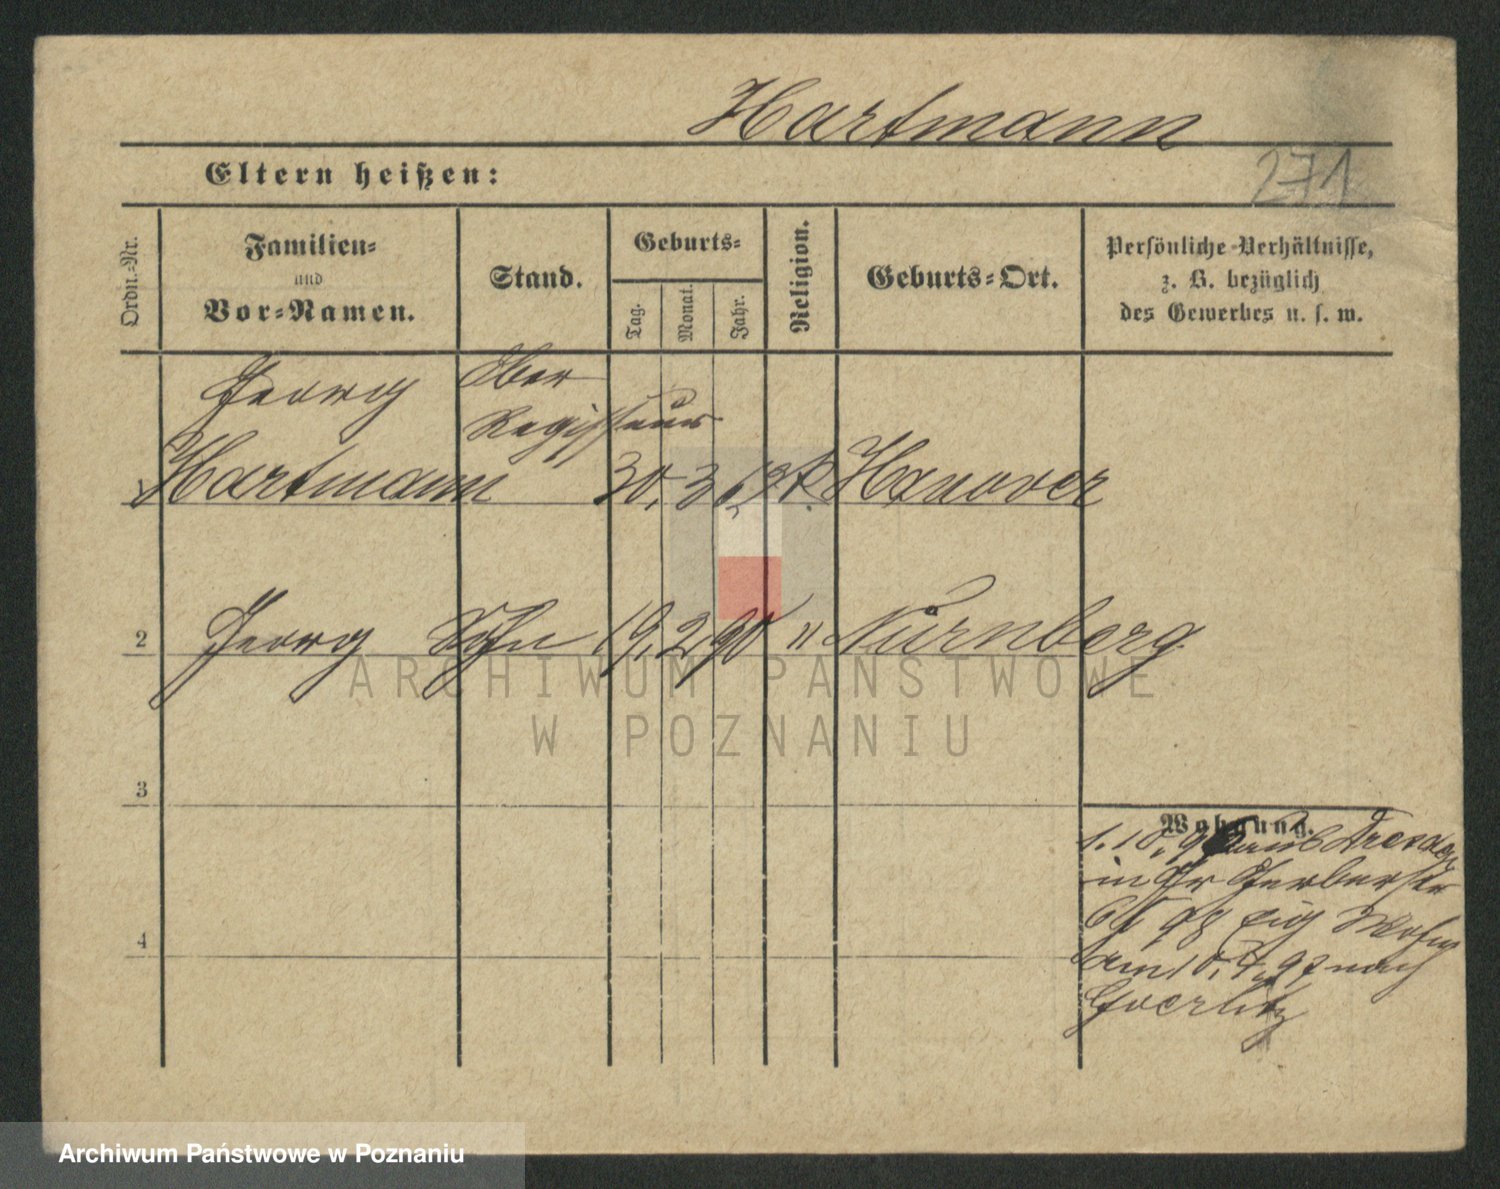 Hartmann
Eltern heißen:
271
Ordn.-Nr.
Familien-
und
Vor-Namen.
Stand.
Geburts-
Tag.
Monat.
Jahr.
Religion.
Geburts-Ort.
Persönliche Verhältnisse,
z. B. bezüglich
des Gewerbes u. s. w.
Georg Ober
Regisseur
1 Hartmann 30. 3. k. Hanover
2 Georg Sohn 19. 2. 90 " Nürnberg
3
4
Wohnung.
1. 10. aus Dresden
in Gr Gerberstr
am 10. 7. 97 nach
Goerlitz
ARCHIWUM PAŃSTWOWE
W POZNANIU
Archiwum Państwowe w Poznaniu